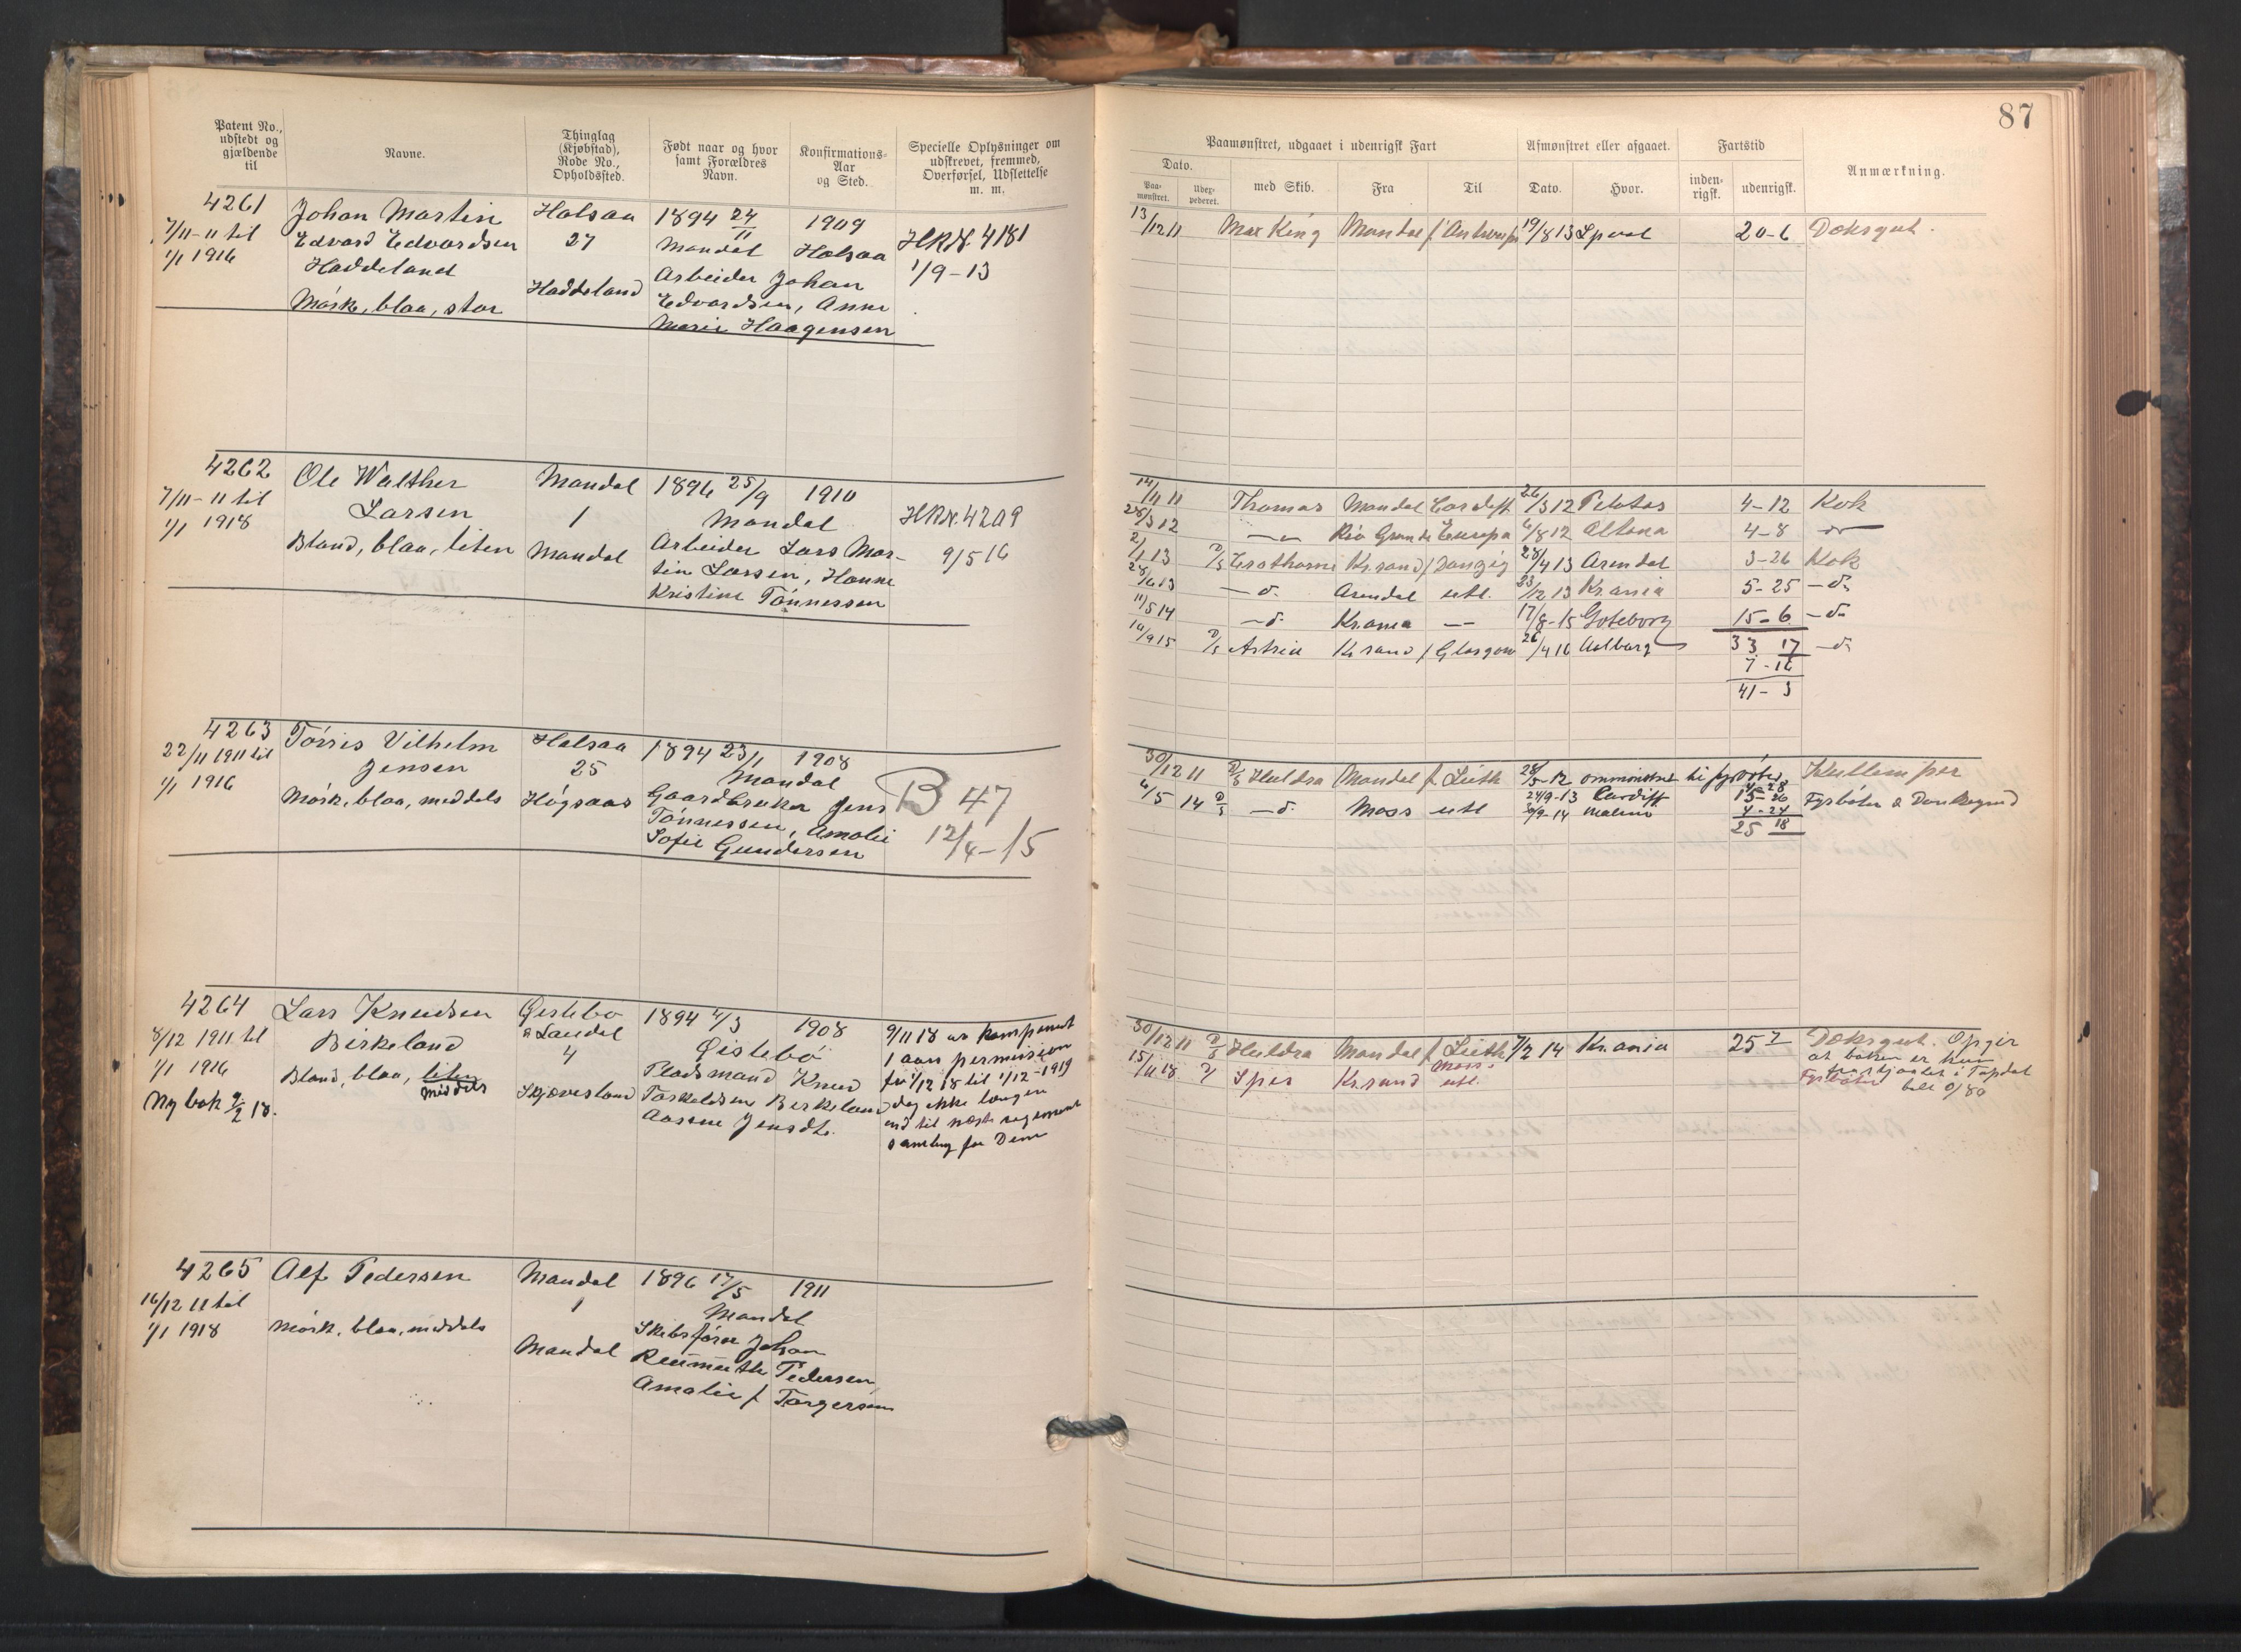 87
Patent No., udstedt og gjældende til
Navne.
Thinglag (Kjøbstad), Rode No., Opholdssted.
Født naar og hvor samt Forældres Navn.
Konfirmations-Aar og Sted.
Specielle Oplysninger om udskrevet, fremmed, Overførsel, Udslettelse m. m.
Paamønstret, udgaaet i udenrigsk Fart
Afmønstret eller afgaaet.
Fartstid
Anmærkning.
Dato.
Paa-mønstret.
med Skib.
Fra
Til
Dato.
Hvor.
inden-rigsk.
udenrigsk.
4261 Johan Martin Halsaa 1894 24/11 1909 HRN. 4181
7/11-11 til Edvard Edvardsen 27 Mandal Halsaa 1/9-13
1/1 1916 Haddeland Arbeider Johan
Haddeland Edvardsen, Anne
Mørk, blaa, stor Marie Haagensen
13/12 11 Max King Mandal f. Antwerpen 19/8 13 Lpool 20-6 Dæksgut.
4262 Ole Walther Mandal 1896 25/9 1910
7/11-11 til Larsen 1 Mandal HRN. 4209
1/1 1918 Blond, blaa, liten Mandal Arbeider Lars Mar- 9/5 16
tin Larsen, Hanne
Kristine Tönnessen
14/11 11 Thomas Mandal Cardiff 26/3 12 Pelotas 4-12 Kok
26/3 12 Rio Grande Europa 6/8 12 Altona 4-8
2/1 13 D/S Krsand f Danzig 28/4 13 Arendal 3-26 Kok
28/6 13 -d. Arendal utl. 23/12 13 Krania 5-25 -d.
11/5 14 -d. Krania 17/8-15 Göteborg 15-6 -d.
10/9 15 D/S Astrid Krsand f Glasgow 26/4 16 Aalborg 33 17 -d.
7-16
41-3
4263 Törris Vilhelm Halsaa 1894 23/1 1908
22/11 1911 til Jensen 25 Mandal B 47
1/1 1916 Mörk, blaa, middels Högsaas Gaardbruker Jens 12/4-15
Tönnessen, Amalie
Sofie Gundersen
30/12 11 D/S Huldra Mandal f. Leith 28/5-12 ommönstret til fyrböter Kullemper
6/5 14 D/S -d. Moss utl 24/9-13 Cardiff 15-26 Fyrböter
9-14 Malmö 4-24
25 18
4264 Lars Knudsen Øislebø 1894 4/3 1908 9/11 18
8/12 1911 til Birkeland & Laudal Øislebö 1 aars permission
1/1 1916 4 Pladsmand Knud fra 1/12 18 til 1/12-1919
Blond, blaa, liten middels Skjævesland Torkeldsen Birkeland dog ikke længer
Ny bok 9/2 18. Aasne Jensdt. end til næste regiments
samling for Dem
30/12 11 D/S Huldra Mandal f. Leith 7/2 14 Krania 25 7 Dæksgut. Opgir
at boken er hun
15/11 18 Spes Krsand Moss. utl. Fyrböter
4265 Alf Pedersen Mandal 1896 17/5 1911
16/12 11 til 1 Mandal
1/1 1918 Mörk, blaa, middels Mandal Skibsfører Johan
Pedersen,
Amalie f. Torgersen